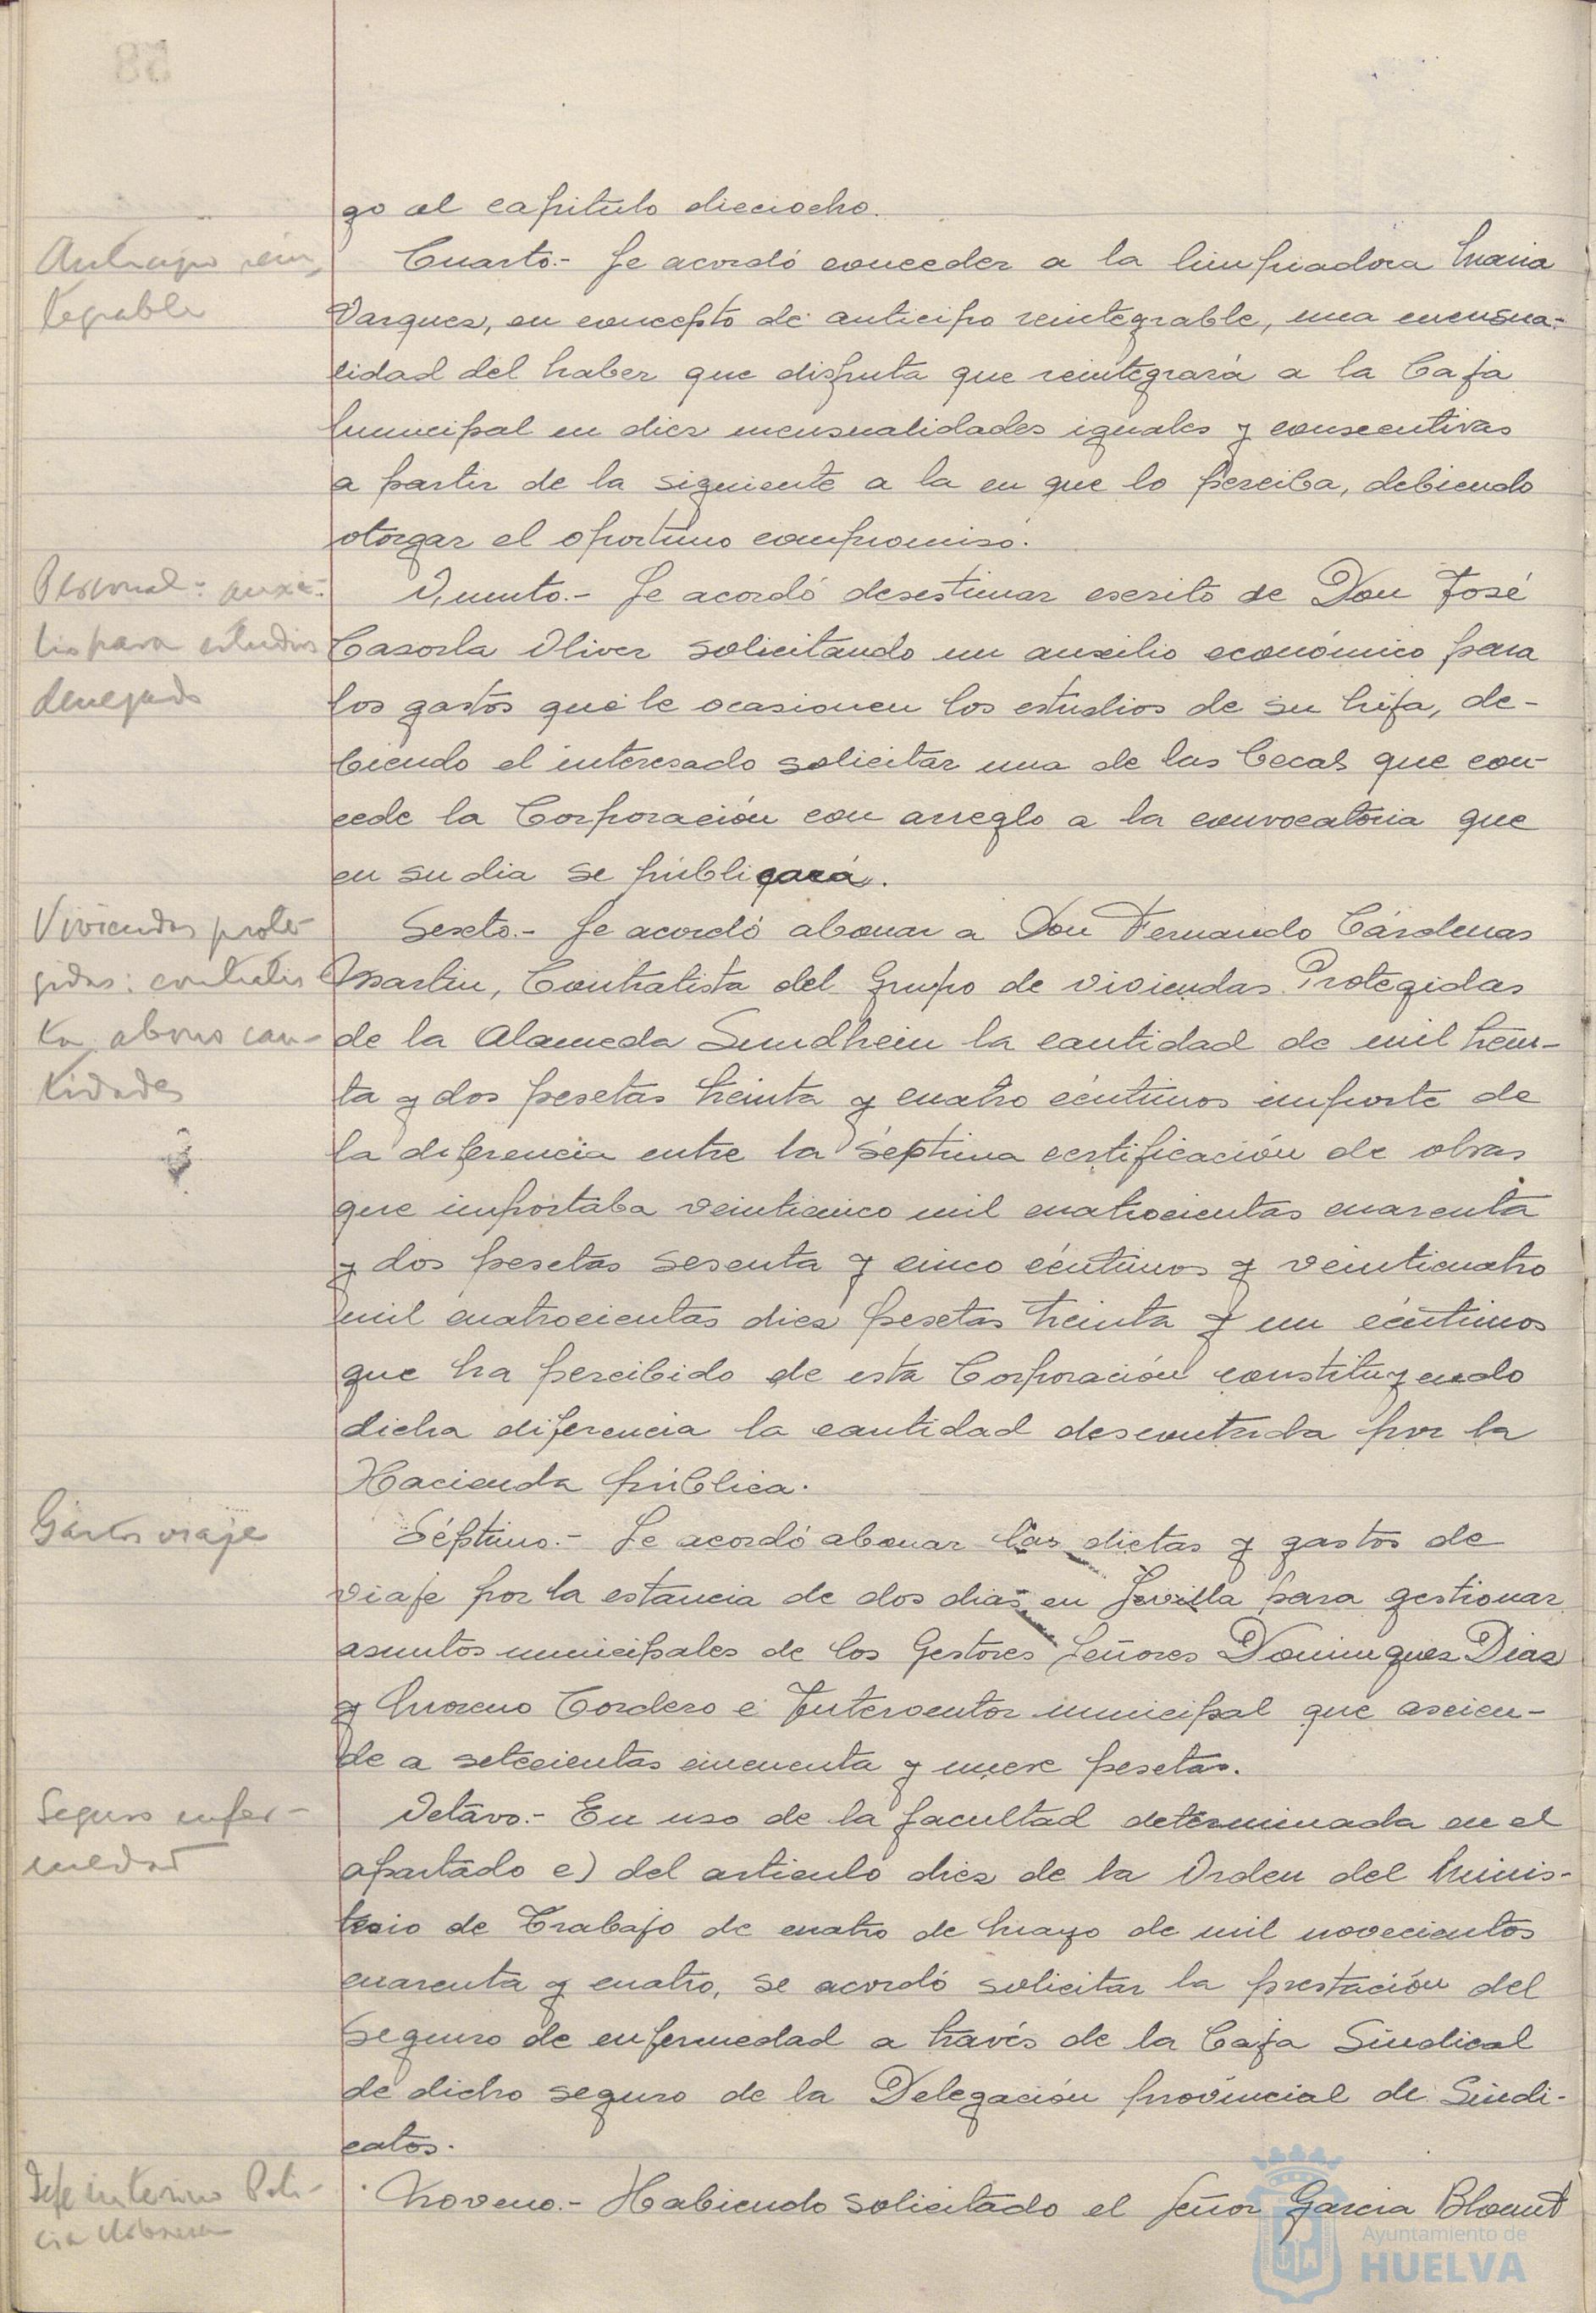 58
go al capitulo dieciocho.
Anticipo rein-
tegrable
Cuarto.- Se acordó conceder a la limpiadora Maria
Vazquez, en concepto de anticipo reintegrable, una mensua-
lidad del haber que disfruta que reintegrará a la Caja
Municipal en diez mensualidades iguales y consecutivas
a partir de la siguiente a la en que lo perciba, debiendo
otorgar el oportuno compromiso.
Personal: auxi-
lio para estudios
denegado
Quinto.- Se acordó desestimar escrito de Don José
Cazorla Oliver solicitando un auxilio económico para
los gastos que le ocasionen los estudios de su hija, de-
biendo el interesado solicitar una de las becas que con-
cede la Corporación con arreglo a la convocatoria que
en su dia se publicará.
Viviendas prote-
gidas: contratis
ta, abono can-
tidades
Sexto.- Se acordó abonar a Don Fernando Cárdenas
Martin, Contratista del Grupo de Viviendas Protegidas
de la Alameda Sundhein la cantidad de mil trein-
ta y dos pesetas treinta y cuatro céntimos importe de
la diferencia entre la séptima certificación de obras
que importaba veinticinco mil cuatrocientas cuarenta
y dos pesetas sesenta y cinco céntimos y veinticuatro
mil cuatrocientas diez pesetas treinta y un céntimos
que ha percibido de esta Corporación constituyendo
dicha diferencia la cantidad descontada por la
Hacienda pública.
Gastos viaje
Séptimo.- Se acordó abonar las dietas y gastos de
viaje por la estancia de dos dias en Sevilla para gestionar
asuntos municipales de los Gestores Señores Dominguez Diaz
y Moreno Cordero e Interventor municipal que ascien-
de a setecientas cincuenta y nueve pesetas.
Seguro enfer-
medad
Octavo.- En uso de la facultad determinada en el
apartado e) del articulo diez de la Orden del Minis-
terio de Trabajo de cuatro de Mayo de mil novecientos
cuarenta y cuatro, se acordó solicitar la prestación del
seguro de enfermedad a través de la Caja Sindical
de dicho seguro de la Delegación provincial de Sindi-
catos.
Jefe interino Poli-
cia Urbana
Noveno.- Habiendo solicitado el Señor Garcia Blount
Ayuntamiento de
HUELVA